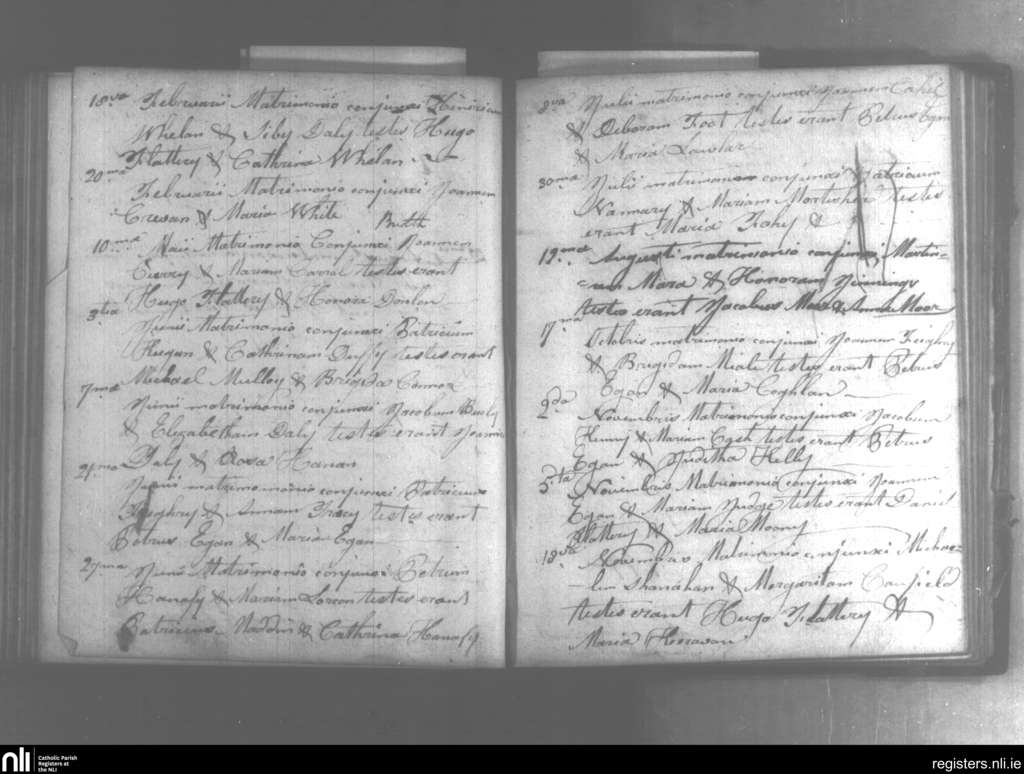 18va Februarii Matrimonio conjunxi Henricum
Whelan & Siby Daly testes Hugo
Flattery & Cathrina Whelan
20ma Februarii Matrimonio conjunxi Joannem
Crevan & Maria White
Buth
10ma Maii Matrimonio Conjunxi Joannem
& Mariam testes erant
Hugo Flattery & Honora Donlon
3tia Junii Matrimonio conjunxi Patricium
& Cathrinam Duffy testes erant
Michael Mulloy & Brigida Connor
7ma Junii matrimonio conjunxi Jacobum
& Elizabetham Daly testes erant
Daly & Rosa Hanan
21ma Junii matrimomonio conjunxi Patricium
Feeghry & Annam Tracy testes erant
Petrus Egan & Maria Egan
27ma Junii Matrimonio conjunxi Petrum
Hanafy & Mariam Larcon testes erant
Patricius Maddin & Cathrina Hanafy
8va Julii matrimonio conjunxi Joannem Cahil
& Deboram Foot testes erant Petrus Egan
& Maria Lawlar
30ma Julii matrimonio conjunxi Patricium
Nannary & Mariam testes
erant Maria Fohy &
12ma Augusti matrimonio conjunxi Martin-
-um Mara & Honoram Jinnings
testes erant Jacobus & Anna Moor
17ma Octobris matrimonio conjunxi Joannem Feighry
& Brigidam Meali testes erant Petrus
Egan & Maria Coghlan
2da Novembris Matrimonio conjunxi Jacobum
Henry & Mariam Cash testes erant Petrus
Egan & Juditha Kelly
5ta Novembris Matrimonio conjunxi Joannem
Egan & Mariam Judge testes erant Daniel
Flattery & Maria Moony
18va Novembris Matrimonio conjunxi Michae-
-lem Shanahan & Margaritam Canfield
testes erant Hugo Flattery &
Maria Kerravan
nli
Catholic Parish
Registers at
the NLI
registers.nli.ie